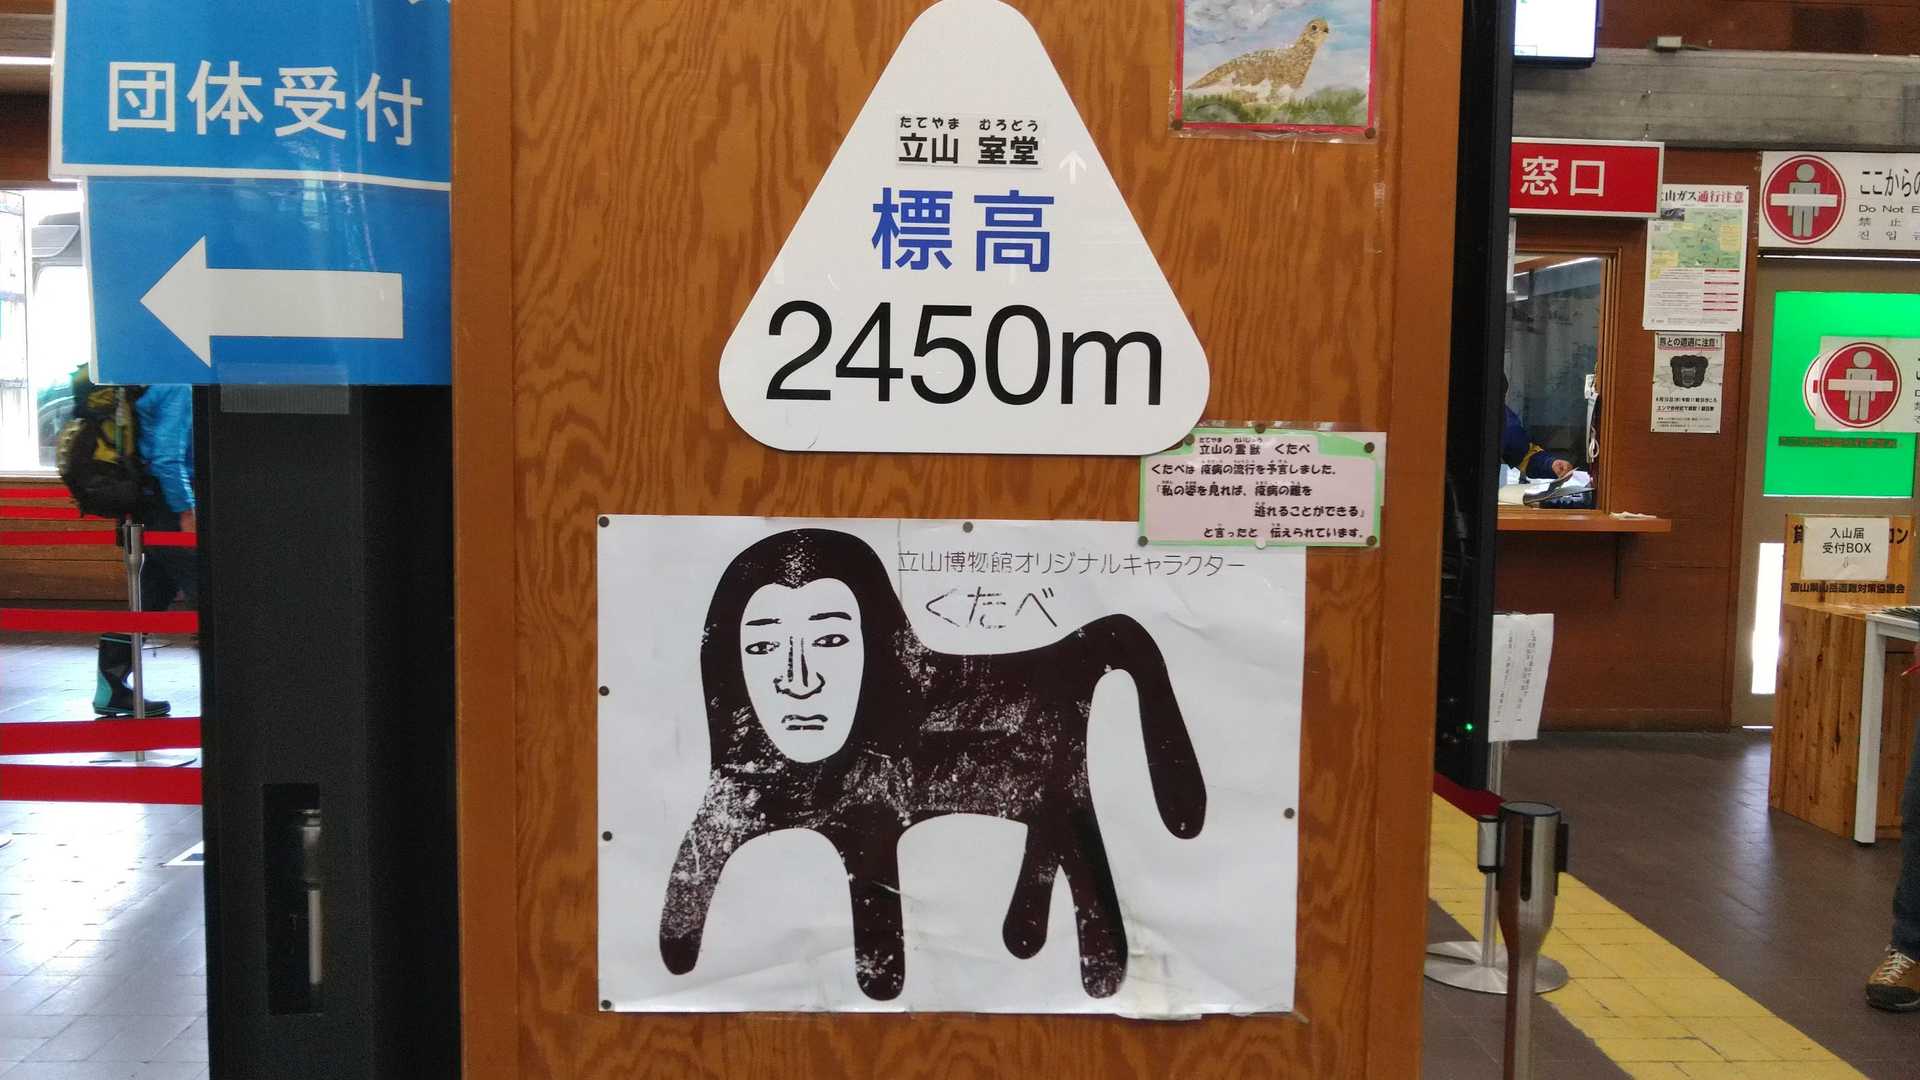 団体受付
たてやま むろどう
立山 室堂
標高
2450m
たてやま れいじゅう
立山の霊獣 くたべ
くたべは 疫病の流行を予言しました。
「私の姿を見れば、疫病の難を
逃れることができる」
と言ったと 伝えられています。
立山博物館オリジナルキャラクター
くたべ
窓口
山ガス通行注意
熊との遭遇に注意!
ここからの
Do Not E
禁 止
진 입 금
入山届
受付BOX
富山県山岳遭難対策協議会